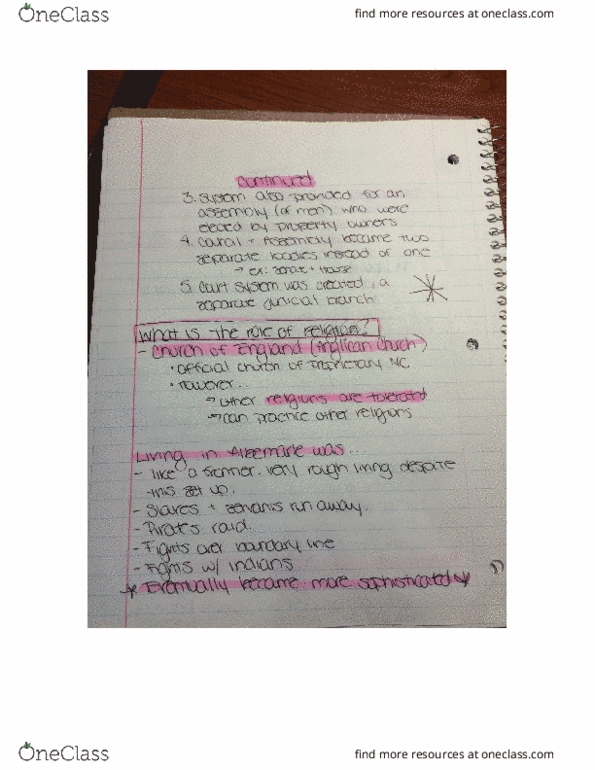 OneClass
find more resources at oneclass.com
continued
3. System also provided for an
assembly (of men) who were
elected by property owners
4. Council + Assembly became two
separate bodies instead of one
→ ex: senate + house
5. Court system was created, a
separate judicial branch
What is the role of religion?
- Church of England (Anglican Church)
• official church of Proprietary NC
• However...
→ other religions are tolerated
→ can practice other religions
Living in Albemarle was...
- like a frontier. very rough living despite
this set up.
- Slaves + servants run away.
- Pirates raid.
- Fights over boundary line
- Fights w/ Indians
* Eventually became more sophisticated *
OneClass
find more resources at oneclass.com